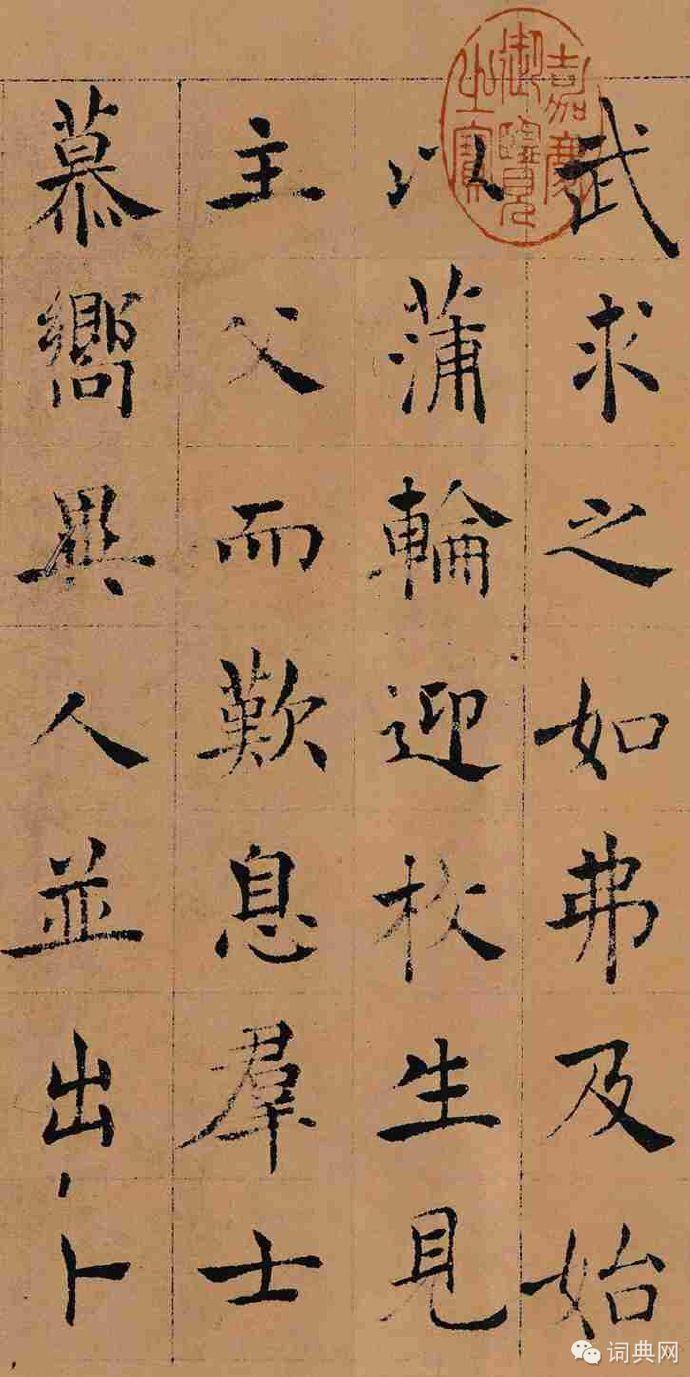 武求之如弗及始
以蒲輪迎枚生見
主父而歎息羣士
慕嚮異人並出卜
嘉慶御覽之寶
词典网